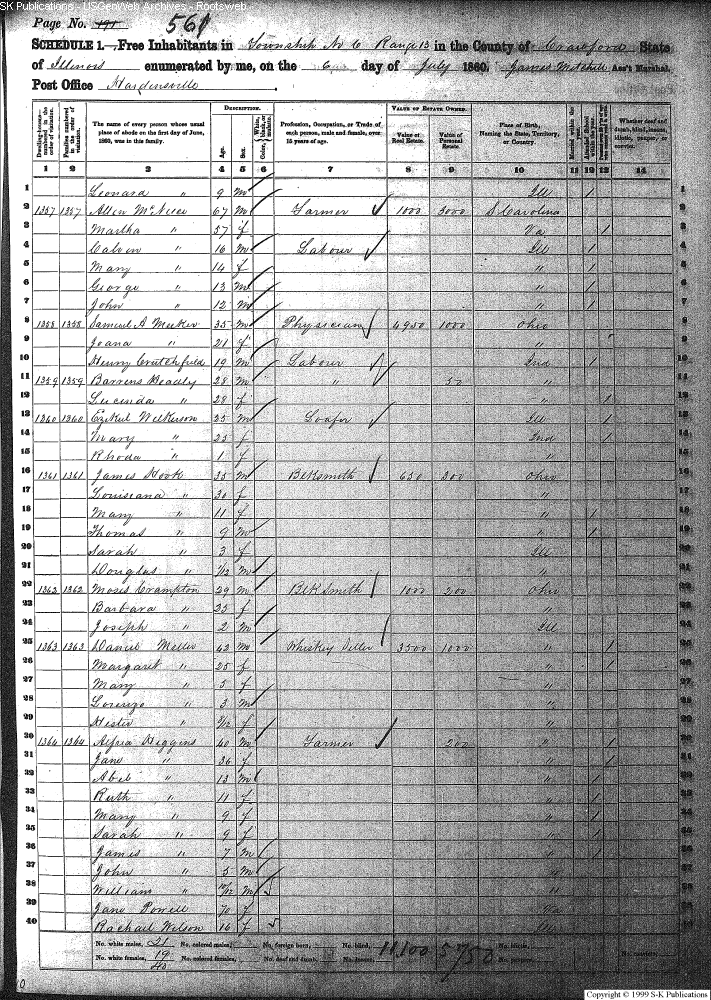 SK Publications - USGenWeb Archives - Rootsweb
Page No. 191 561
SCHEDULE 1.—Free Inhabitants in Township No 6 Range 13 in the County of Crawford State
of Illinois enumerated by me, on the 6 day of July 1860. James Mitchell Ass't Marshal.
Post Office Hardinsville
DESCRIPTION. VALUE OF ESTATE OWNED.
Dwelling-houses—numbered in the order of visitation. Families numbered in the order of visitation. The name of every person whose usual place of abode on the first day of June, 1860, was in this family. Age. Sex. Color, White, black, or mulatto. Profession, Occupation, or Trade of each person, male and female, over 15 years of age. Value of Real Estate. Value of Personal Estate. Place of Birth, Naming the State, Territory, or Country. Married within the year. Attended School within the year. Whether deaf and dumb, blind, insane, idiotic, pauper, or convict.
1 2 3 4 5 6 7 8 9 10 11 12 13 14
1 Leonard " 9 m Ill 1 1
2 1357 1357 Allen McNeece 67 m Farmer 1000 3000 S Carolina 2
3 Martha " 57 f Va 1 3
4 Calvin " 16 m Labour Ill 1 4
5 Mary " 14 f " 1 5
6 George " 13 m " 1 6
7 John " 12 m " 1 7
8 1358 1358 Samuel A Meeker 35 m Physician 4950 1000 Ohio 8
9 Joana " 21 f " 9
10 Henry Crutchfield 19 m Labour Ind 1 10
11 1359 1359 Barrens Beadly 28 m " 50 " 11
12 Lucinda " 28 f " 1 12
13 1360 1360 Ezikiel Wilkerson 25 m Loafer Ill 1 13
14 Mary " 25 f Ind 1 14
15 Rhoda " 1 f " 15
16 1361 1361 James Hook 35 m Blksmith 650 300 Ohio 16
17 Louisiana " 30 f " 17
18 Mary " 11 f " 1 18
19 Thomas " 9 m " 1 19
20 Sarah " 3 f Ill 20
21 Douglas " /12 m " 21
22 1362 1362 Moses Crampton 29 m Blksmith 1000 200 Ohio 22
23 Barbara " 25 f " 23
24 Joseph " 2 m Ill 24
25 1363 1363 Daniel Meller 42 m Whiskey Seller 3500 1000 " 1 25
26 Margaret " 25 f " 1 26
27 Mary " 5 f " 27
28 Lorenzo " 3 m " 28
29 Hester " /12 f " 29
30 1364 1364 Higgins 40 m Farmer 200 " 1 30
31 Jane " 36 f " 1 31
32 Abel " 13 m " 1 32
33 Ruth " 11 f " 1 33
34 Mary " 9 f " 1 34
35 Sarah " 9 f " 1 35
36 James " 7 m " 1 36
37 John " 5 m " 37
38 William " /12 m " 38
39 Jane Powell 70 f Va 39
40 Rachael Wilson 16 f Ill 40
No. white males, 21 No. colored males, No. foreign born, No. blind, 11,100 5750 No. idiotic, No. convicts,
No. white females, 19 No. colored females, No. deaf and dumb, No. insane, No. paupers,
40
Copyright © 1999 S-K Publications